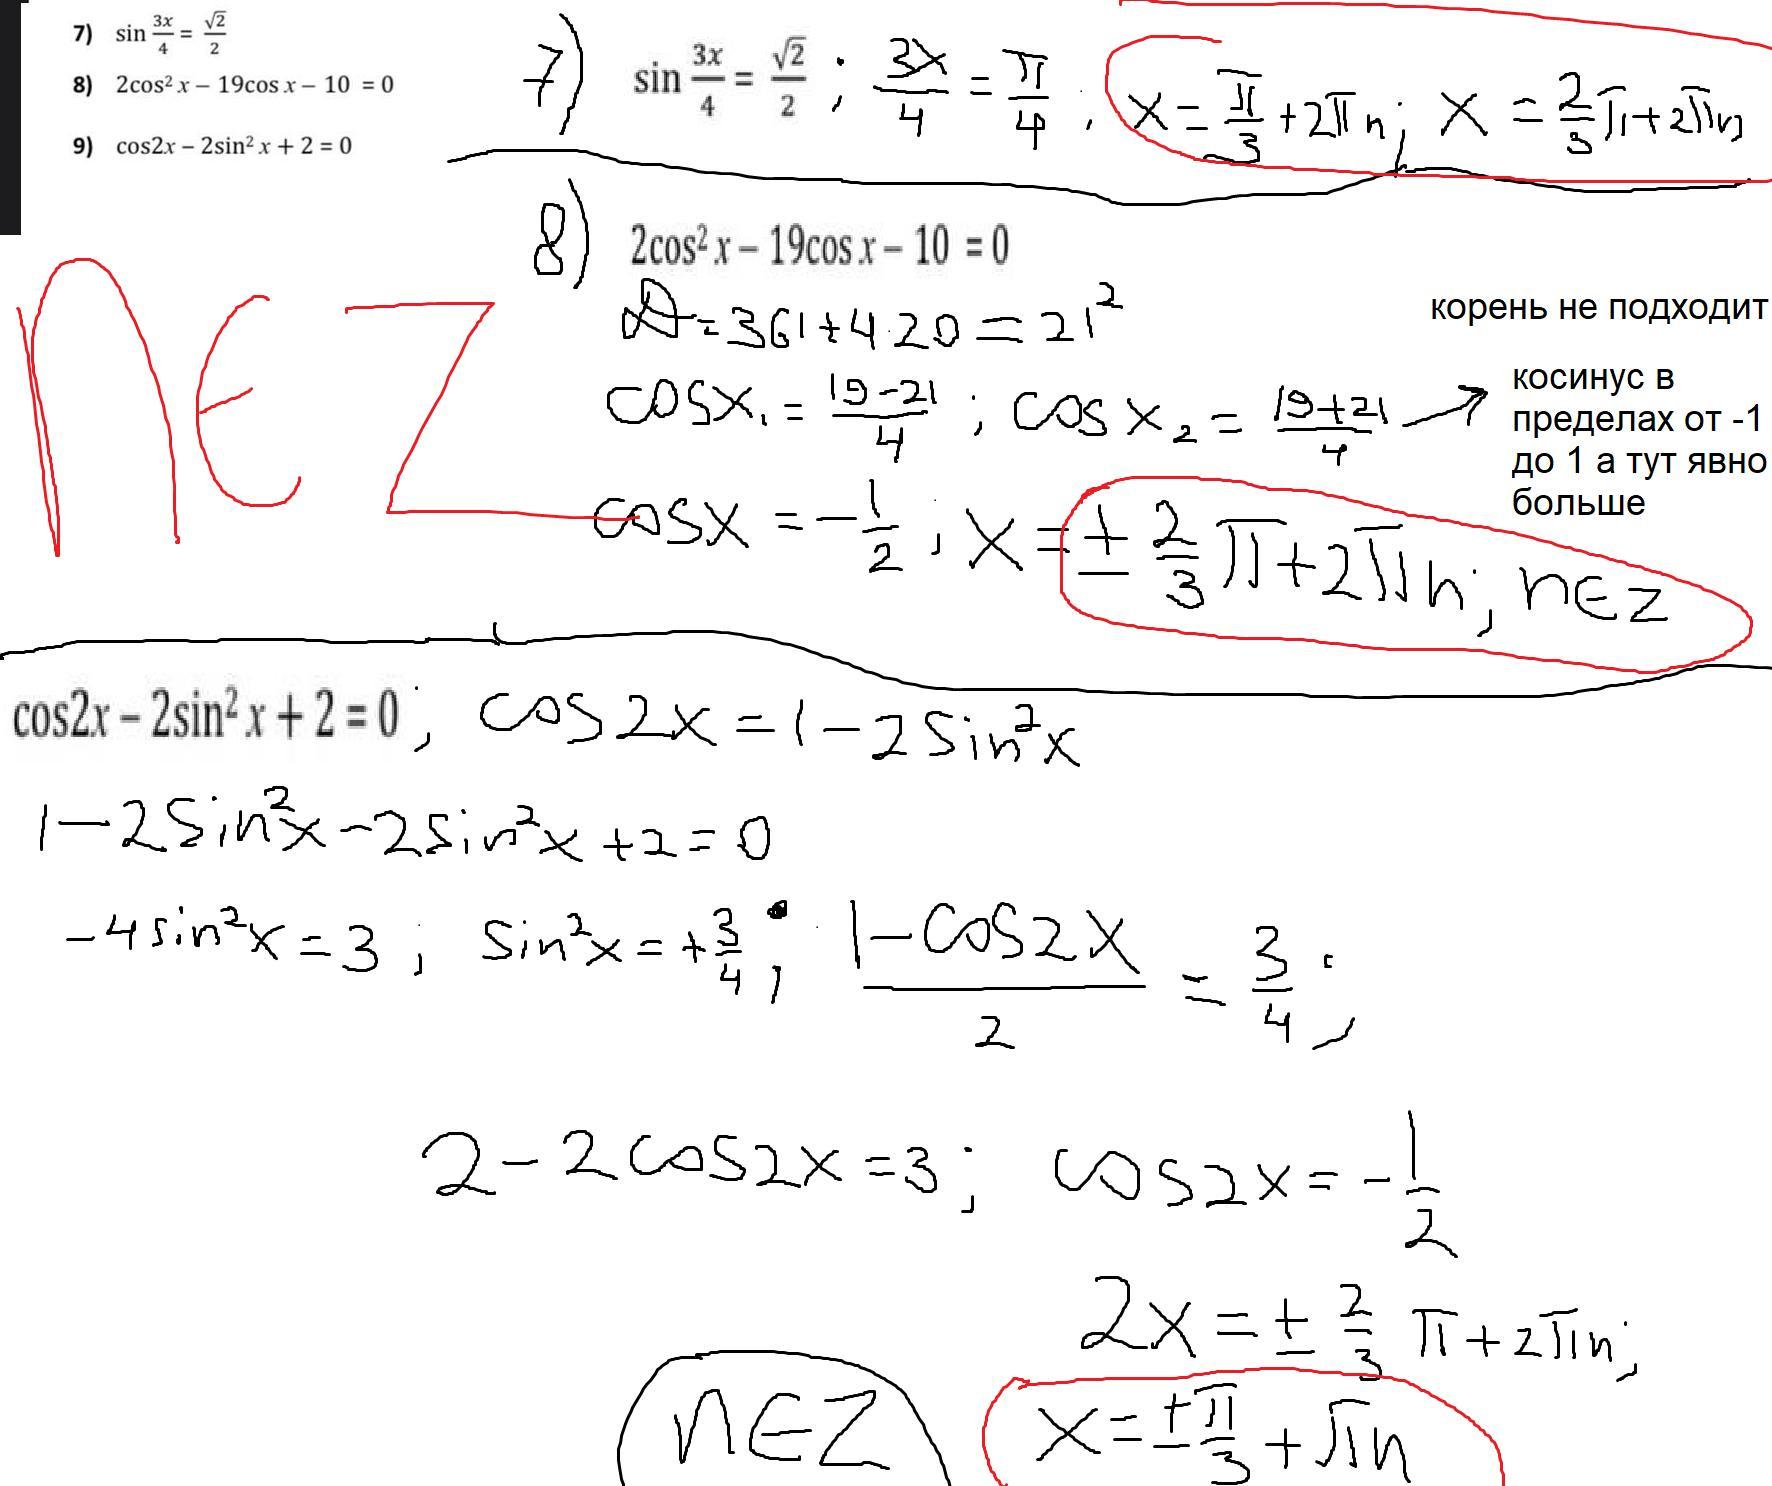 7) sin 3x/4 = √2/2
8) 2cos² x – 19cos x – 10 = 0
9) cos2x – 2sin² x + 2 = 0
7) sin 3x/4 = √2/2 ; 3x/4 = π/4 ; x = π/3 + 2πn; x = 2/3 π + 2πn
8) 2cos² x – 19cos x – 10 = 0
D = 361 + 4·20 = 21²
cosx₁ = 19-21/4 ; cosx₂ = 19+21/4
корень не подходит
косинус в
пределах от -1
до 1 а тут явно
больше
cosx = -1/2 ; x = ± 2/3 π + 2πn; n∈Z
n∈Z
cos2x – 2sin² x + 2 = 0 ; cos2x = 1 - 2sin²x
1 - 2sin²x - 2sin²x + 2 = 0
-4sin²x = 3 ; sin²x = + 3/4 ; 1-cos2x/2 = 3/4 ;
2 - 2cos2x = 3; cos2x = -1/2
2x = ± 2/3 π + 2πn;
n∈Z x = ± π/3 + πn